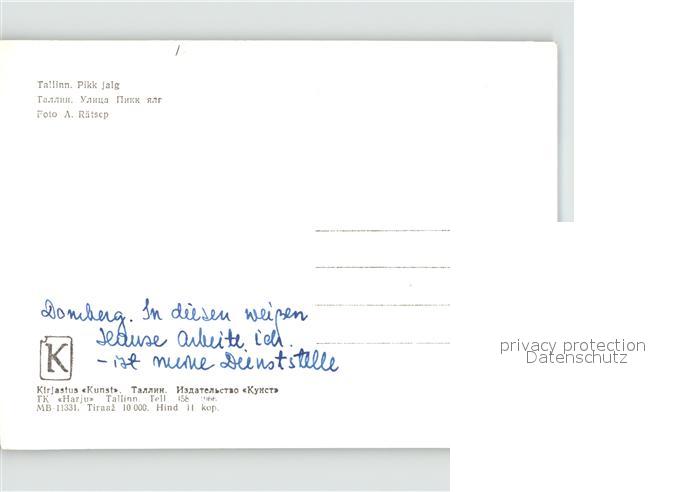 Tallinn. Pikk jalg
Таллин. Улица Пикк ялг
Foto A. Rätsep
Domberg. In diesen weißen
Hause arbeite ich.
- ist meine Dienststelle
K
Kirjastus «Kunst». Таллин. Издательство «Кунст»
TK «Harju» Tallinn. Tell 458 1966.
MB-11331. Tiraaž 10 000. Hind 11 kop.
privacy protection
Datenschutz